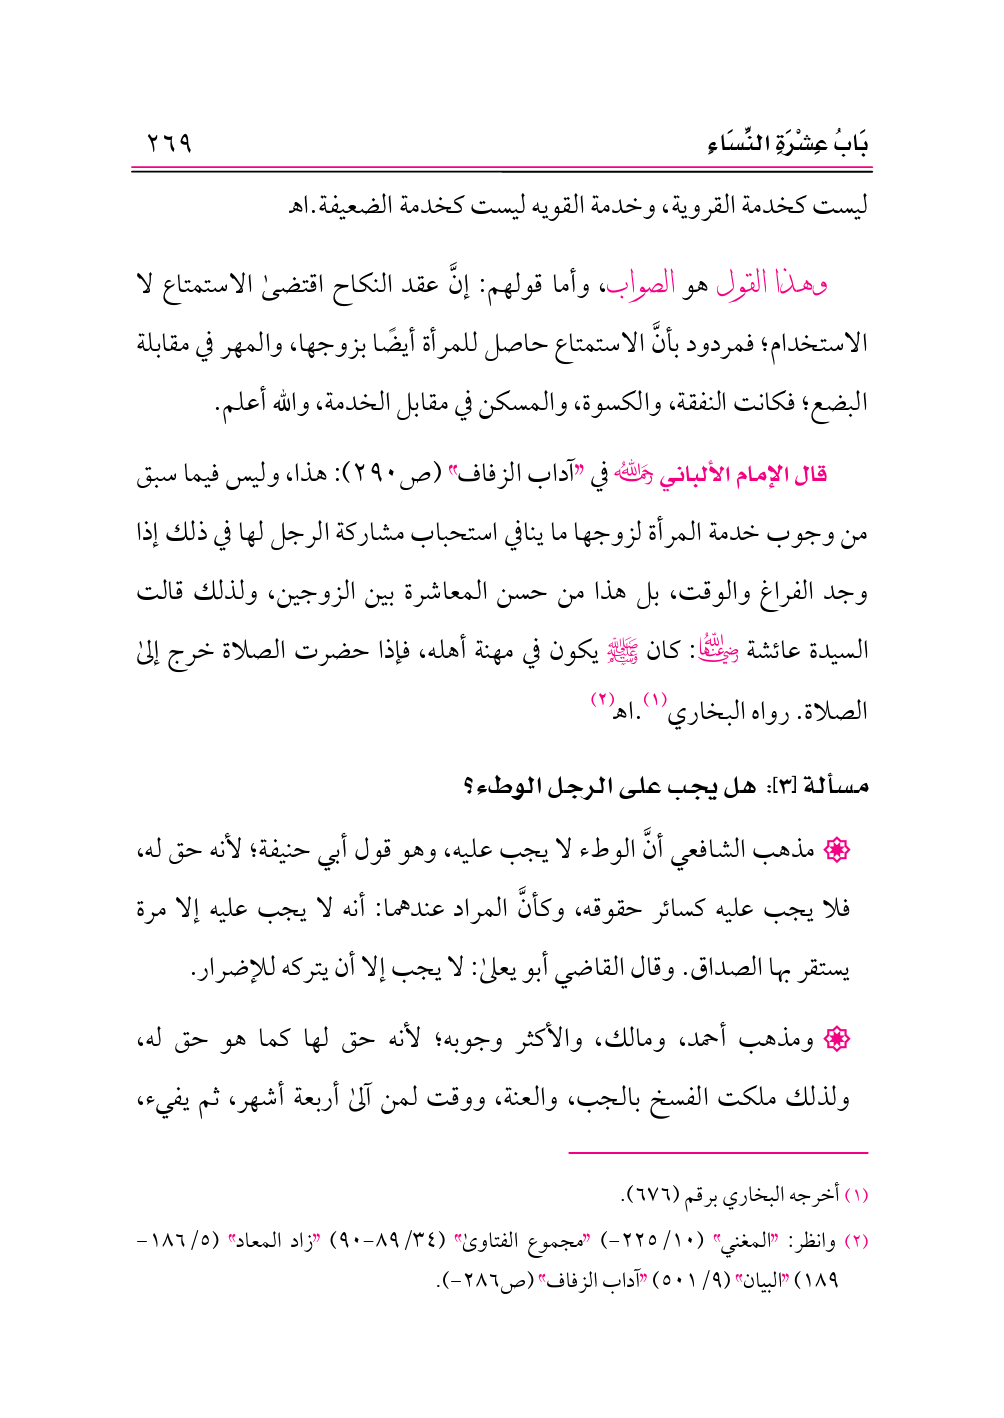 بَابُ عِشْرَةِ النِّسَاءِ ٢٦٩
ليست كخدمة القروية، وخدمة القويه ليست كخدمة الضعيفة.اهـ
وهذا القول هو الصواب، وأما قولهم: إنَّ عقد النكاح اقتضىٰ الاستمتاع لا
الاستخدام؛ فمردود بأنَّ الاستمتاع حاصل للمرأة أيضًا بزوجها، والمهر في مقابلة
البضع؛ فكانت النفقة، والكسوة، والمسكن في مقابل الخدمة، والله أعلم.
قال الإمام الألباني رحمه الله في "آداب الزفاف" (ص٢٩٠): هذا، وليس فيما سبق
من وجوب خدمة المرأة لزوجها ما ينافي استحباب مشاركة الرجل لها في ذلك إذا
وجد الفراغ والوقت، بل هذا من حسن المعاشرة بين الزوجين، ولذلك قالت
السيدة عائشة رضي الله عنها: كان ﷺ يكون في مهنة أهله، فإذا حضرت الصلاة خرج إلىٰ
الصلاة. رواه البخاري(١).اهـ(٢)
مسألة [٣]: هل يجب على الرجل الوطء؟
مذهب الشافعي أنَّ الوطء لا يجب عليه، وهو قول أبي حنيفة؛ لأنه حق له،
فلا يجب عليه كسائر حقوقه، وكأنَّ المراد عندهما: أنه لا يجب عليه إلا مرة
يستقر بها الصداق. وقال القاضي أبو يعلىٰ: لا يجب إلا أن يتركه للإضرار.
ومذهب أحمد، ومالك، والأكثر وجوبه؛ لأنه حق لها كما هو حق له،
ولذلك ملكت الفسخ بالجب، والعنة، ووقت لمن آلىٰ أربعة أشهر، ثم يفيء،
(١) أخرجه البخاري برقم (٦٧٦).
(٢) وانظر: "المغني" (١٠/ ٢٢٥-) "مجموع الفتاوىٰ" (٣٤/ ٨٩-٩٠) "زاد المعاد" (٥/ ١٨٦-
١٨٩) "البيان" (٩/ ٥٠١) "آداب الزفاف" (ص٢٨٦-).